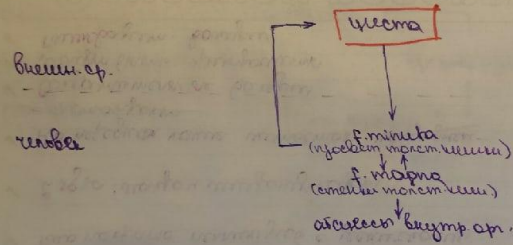 циста
внешн. ср.
человек
f. minuta
(просвет толст. кишки)
f. magna
(стенки толст. киш.)
абсцессы внутр. орг.